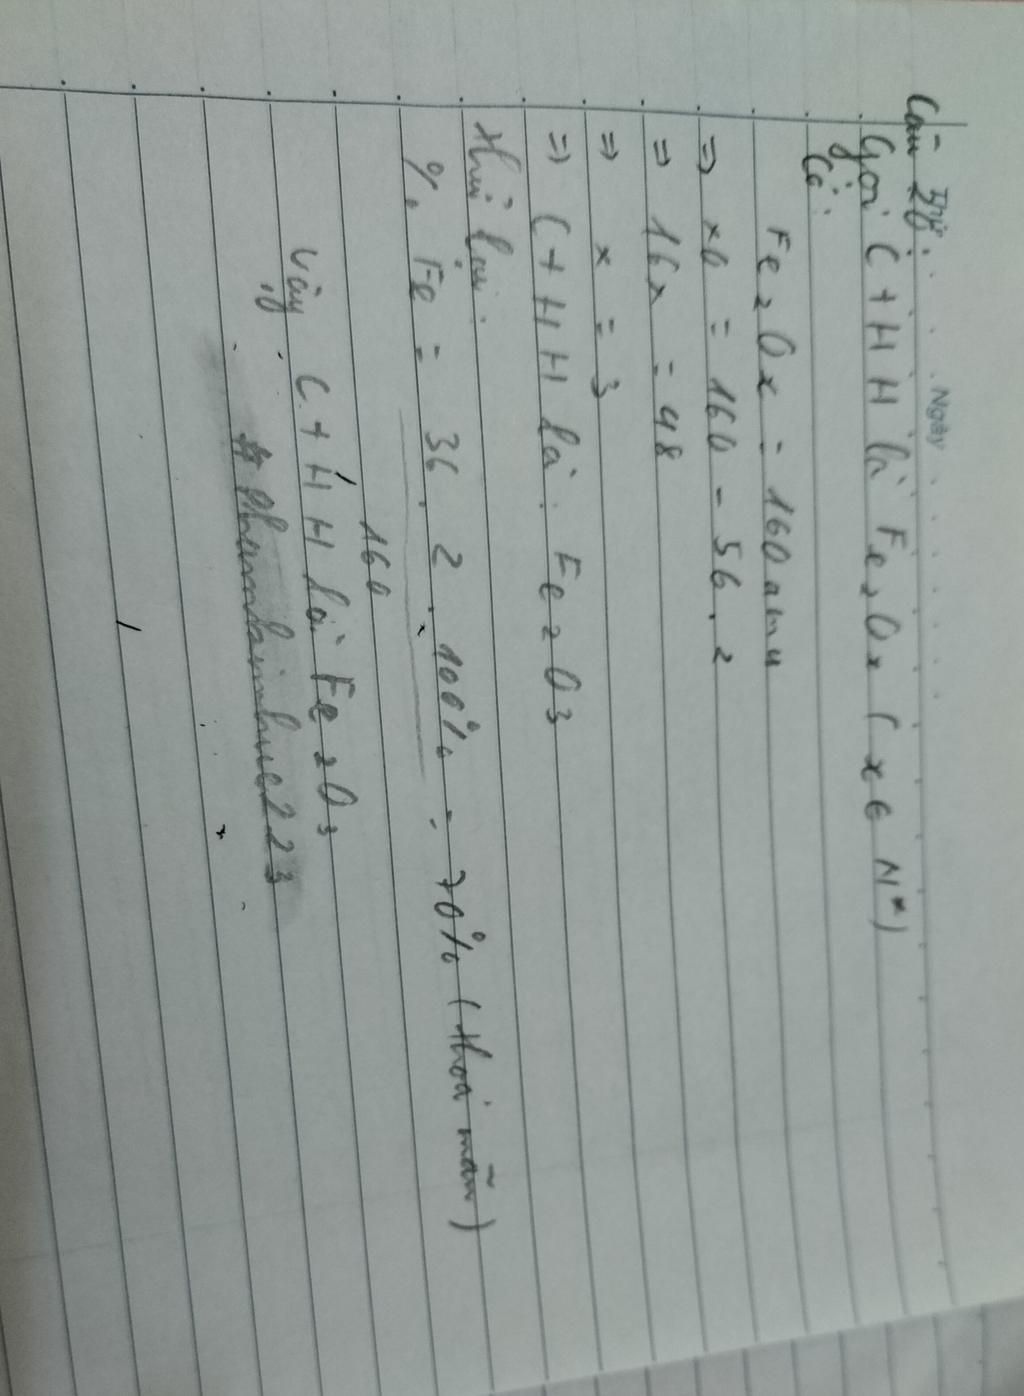 Thứ Ngày
Câu 28:
Gọi CTHH là Fe2Ox (x ∈ N*)
Có:
Fe2Ox = 160 amu
=> xO = 160 - 56 . 2
=> 16x = 48
=> x = 3
=> CTHH là: Fe2O3
thử lại:
% Fe = 56 . 2 . 100% = 70% (thoả mãn)
160
Vậy CTHH là Fe2O3